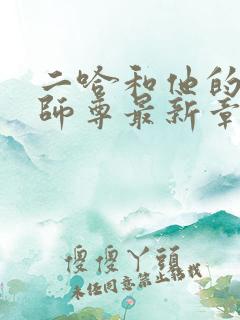 二哈和他的
師尊最新章
傻傻丫頭
未经同意禁止转载